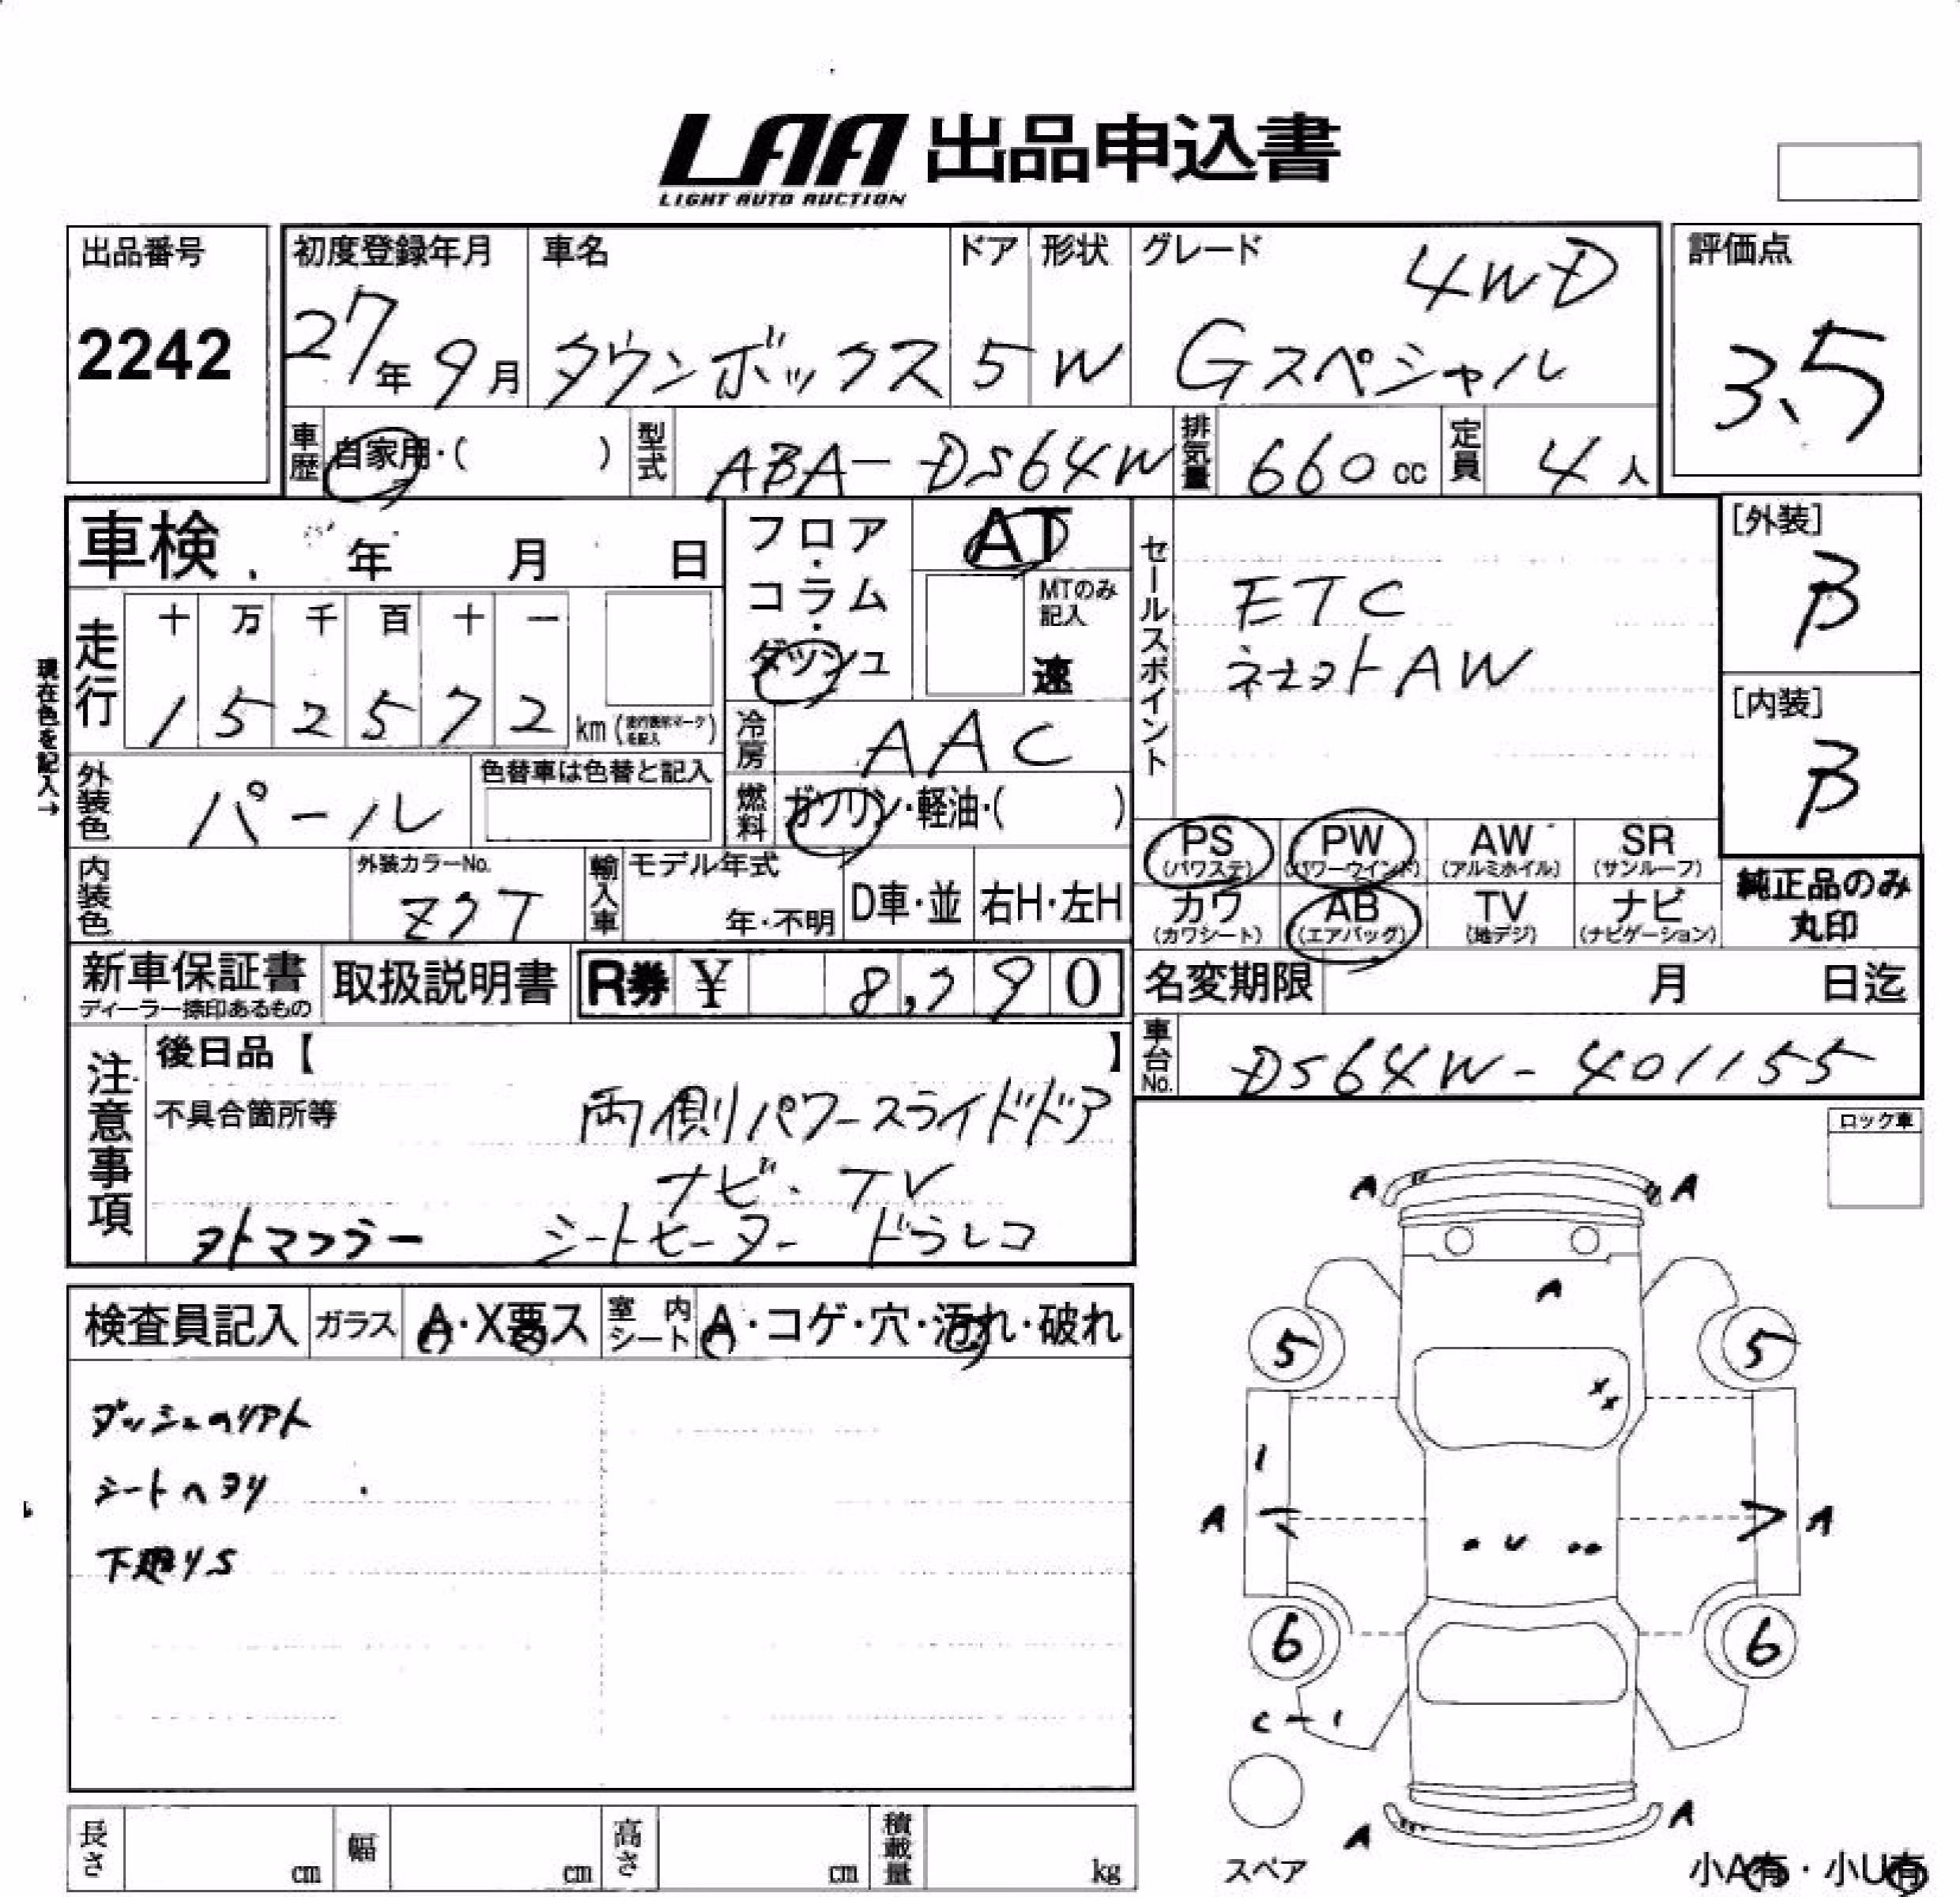 LAA 出品申込書
LIGHT AUTO AUCTION
出品番号
2242
初度登録年月
27年9月
車名
タウンボックス
ドア
5
形状
W
グレード
4WD
Gスペシャル
評価点
3.5
車歴
自家用・( )
型式
ABA-DS64W
排気量
660cc
定員
4人
車検 年 月 日
フロア・コラム・ダッシュ
AT
MTのみ記入
速
セールスポイント
ETC
AW
[外装]
B
[内装]
B
現在色を記入→
走行
十 万 千 百 十 一
1 5 2 5 7 2 km
冷房
AAC
外装色
パール
色替車は色替と記入
燃料
ガソリン・軽油・( )
PS
(パワステ)
PW
(パワーウインド)
AW
(アルミホイル)
SR
(サンルーフ)
カワ
(カワシート)
AB
(エアバッグ)
TV
(地デジ)
ナビ
(ナビゲーション)
純正品のみ
丸印
内装色
外装カラーNo.
Z7T
輸入車
モデル年式
年・不明
D車・並
右H・左H
新車保証書
ディーラー捺印あるもの
取扱説明書
R券 ¥ 8,790
名変期限 月 日迄
車台No.
DS64W-401155
注意事項
後日品【 】
不具合箇所等
両側パワースライドドア
ナビ・TV
シートヒーター ドラレコ
ロック車
検査員記入
ガラス
A・X要ス
室内シート
A・コゲ・穴・汚れ・破れ
シートヘタリ
下廻りS
A A
A
5 5
X X
1
A A
U
6 6
C-1
A A
スペア
小A有・小U有
長さ cm
幅 cm
高さ cm
積載量 kg